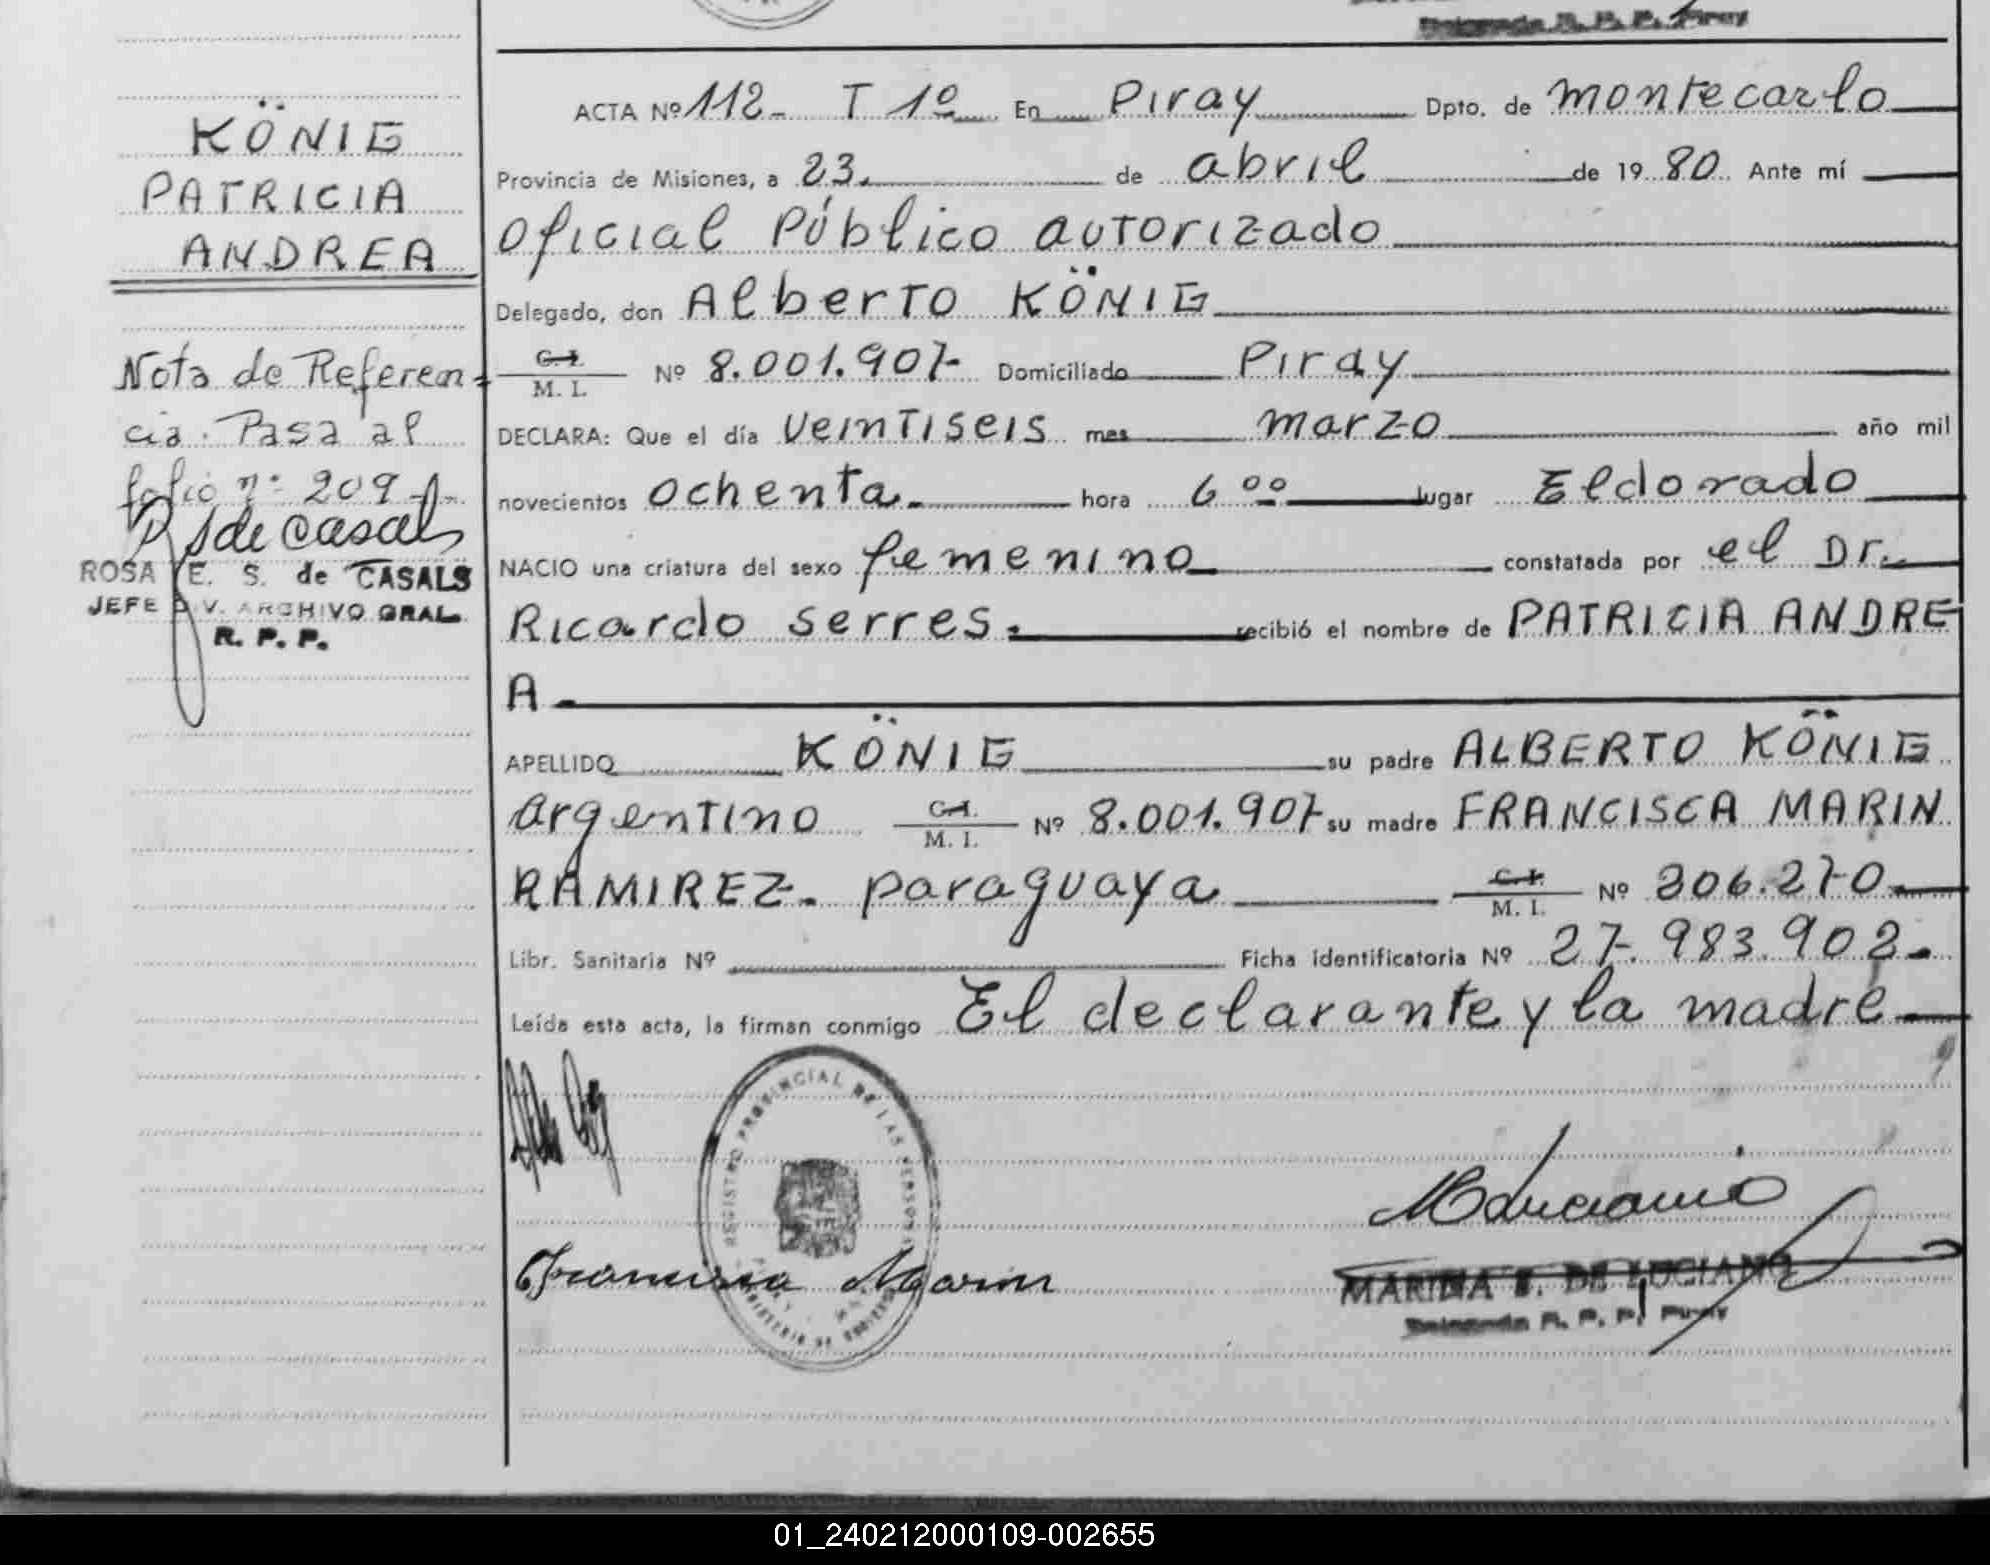 Delegada R. P. P. Piray
KÖNIG
PATRICIA
ANDREA
Nota de Referen-
cia. Pasa al
folio nº 209
R S de Casals
ROSA E. S. de CASALS
JEFE DIV. ARCHIVO GRAL.
R. P. P.
ACTA Nº 112- T 1º En Piray Dpto. de Montecarlo
Provincia de Misiones, a 23. de abril de 1980 Ante mí
Oficial Público autorizado
Delegado, don Alberto KÖNIG
C. I. / M. I. Nº 8.001.907- Domiciliado Piray
DECLARA: Que el día veintiseis mes marzo año mil
novecientos ochenta. hora 6 00 lugar Eldorado
NACIO una criatura del sexo femenino constatada por el Dr.
Ricardo Serres. recibió el nombre de PATRICIA ANDRE
A.
APELLIDO KÖNIG su padre ALBERTO KÖNIG
argentino C. I. / M. I. Nº 8.001.907 su madre FRANCISCA MARIN
RAMIREZ. paraguaya C. I. / M. I. Nº 306.270
Libr. Sanitaria Nº Ficha identificatoria Nº 27.983.902.
Leída esta acta, la firman conmigo El declarante y la madre
REGISTRO PROVINCIAL DE LAS PERSONAS
Francisca Marin
MARINA S. DE LUCIANO
Delegada R. P. P. Piray
01_240212000109-002655